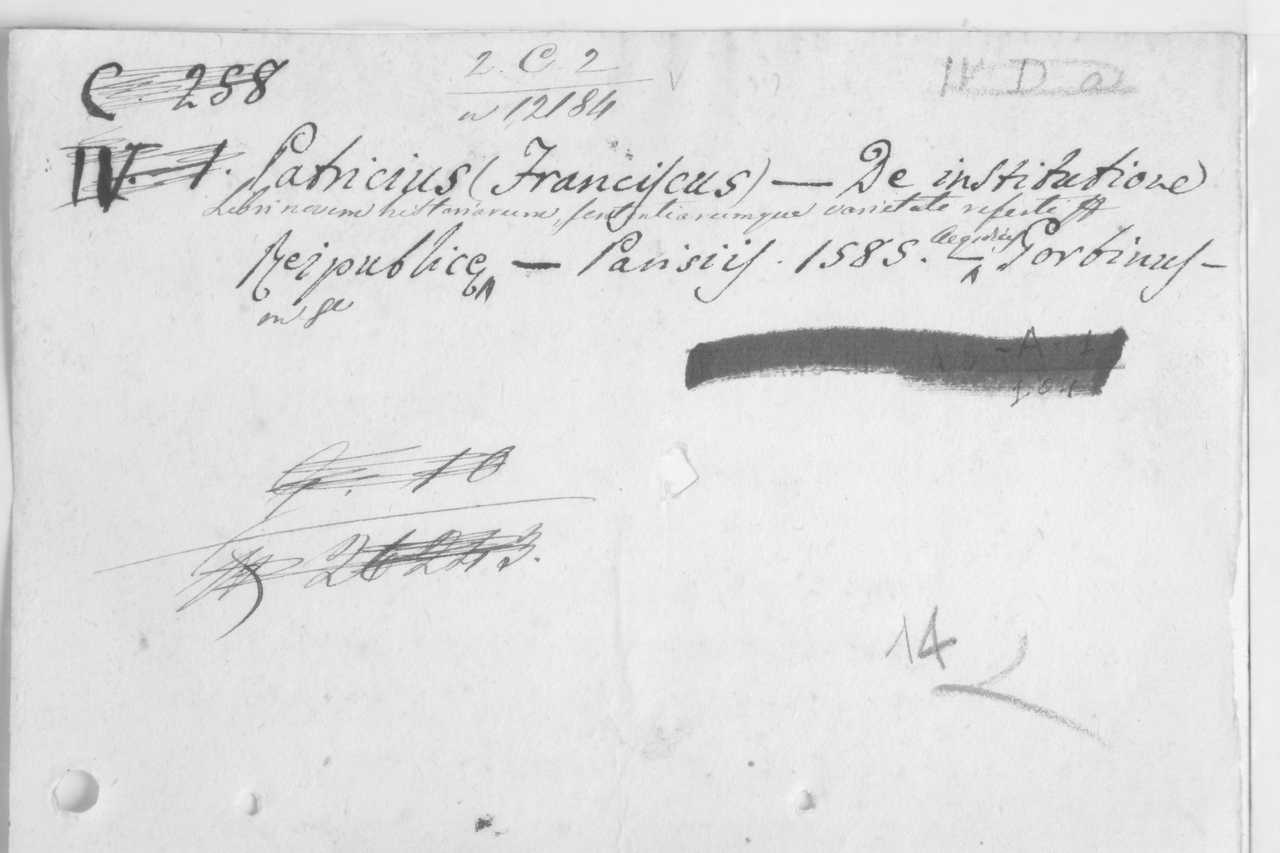 C 258
2. C. 2
n 12184
11 D a
IV. 1. Patricius (Franciscus) — De institutione
Libri novem historiarum, sententiarumque varietate referti
Reipublice — Parisiis. 1585. Aegidius Gorbinus -
in 8e
A 1
101
G. 10
26213.
14